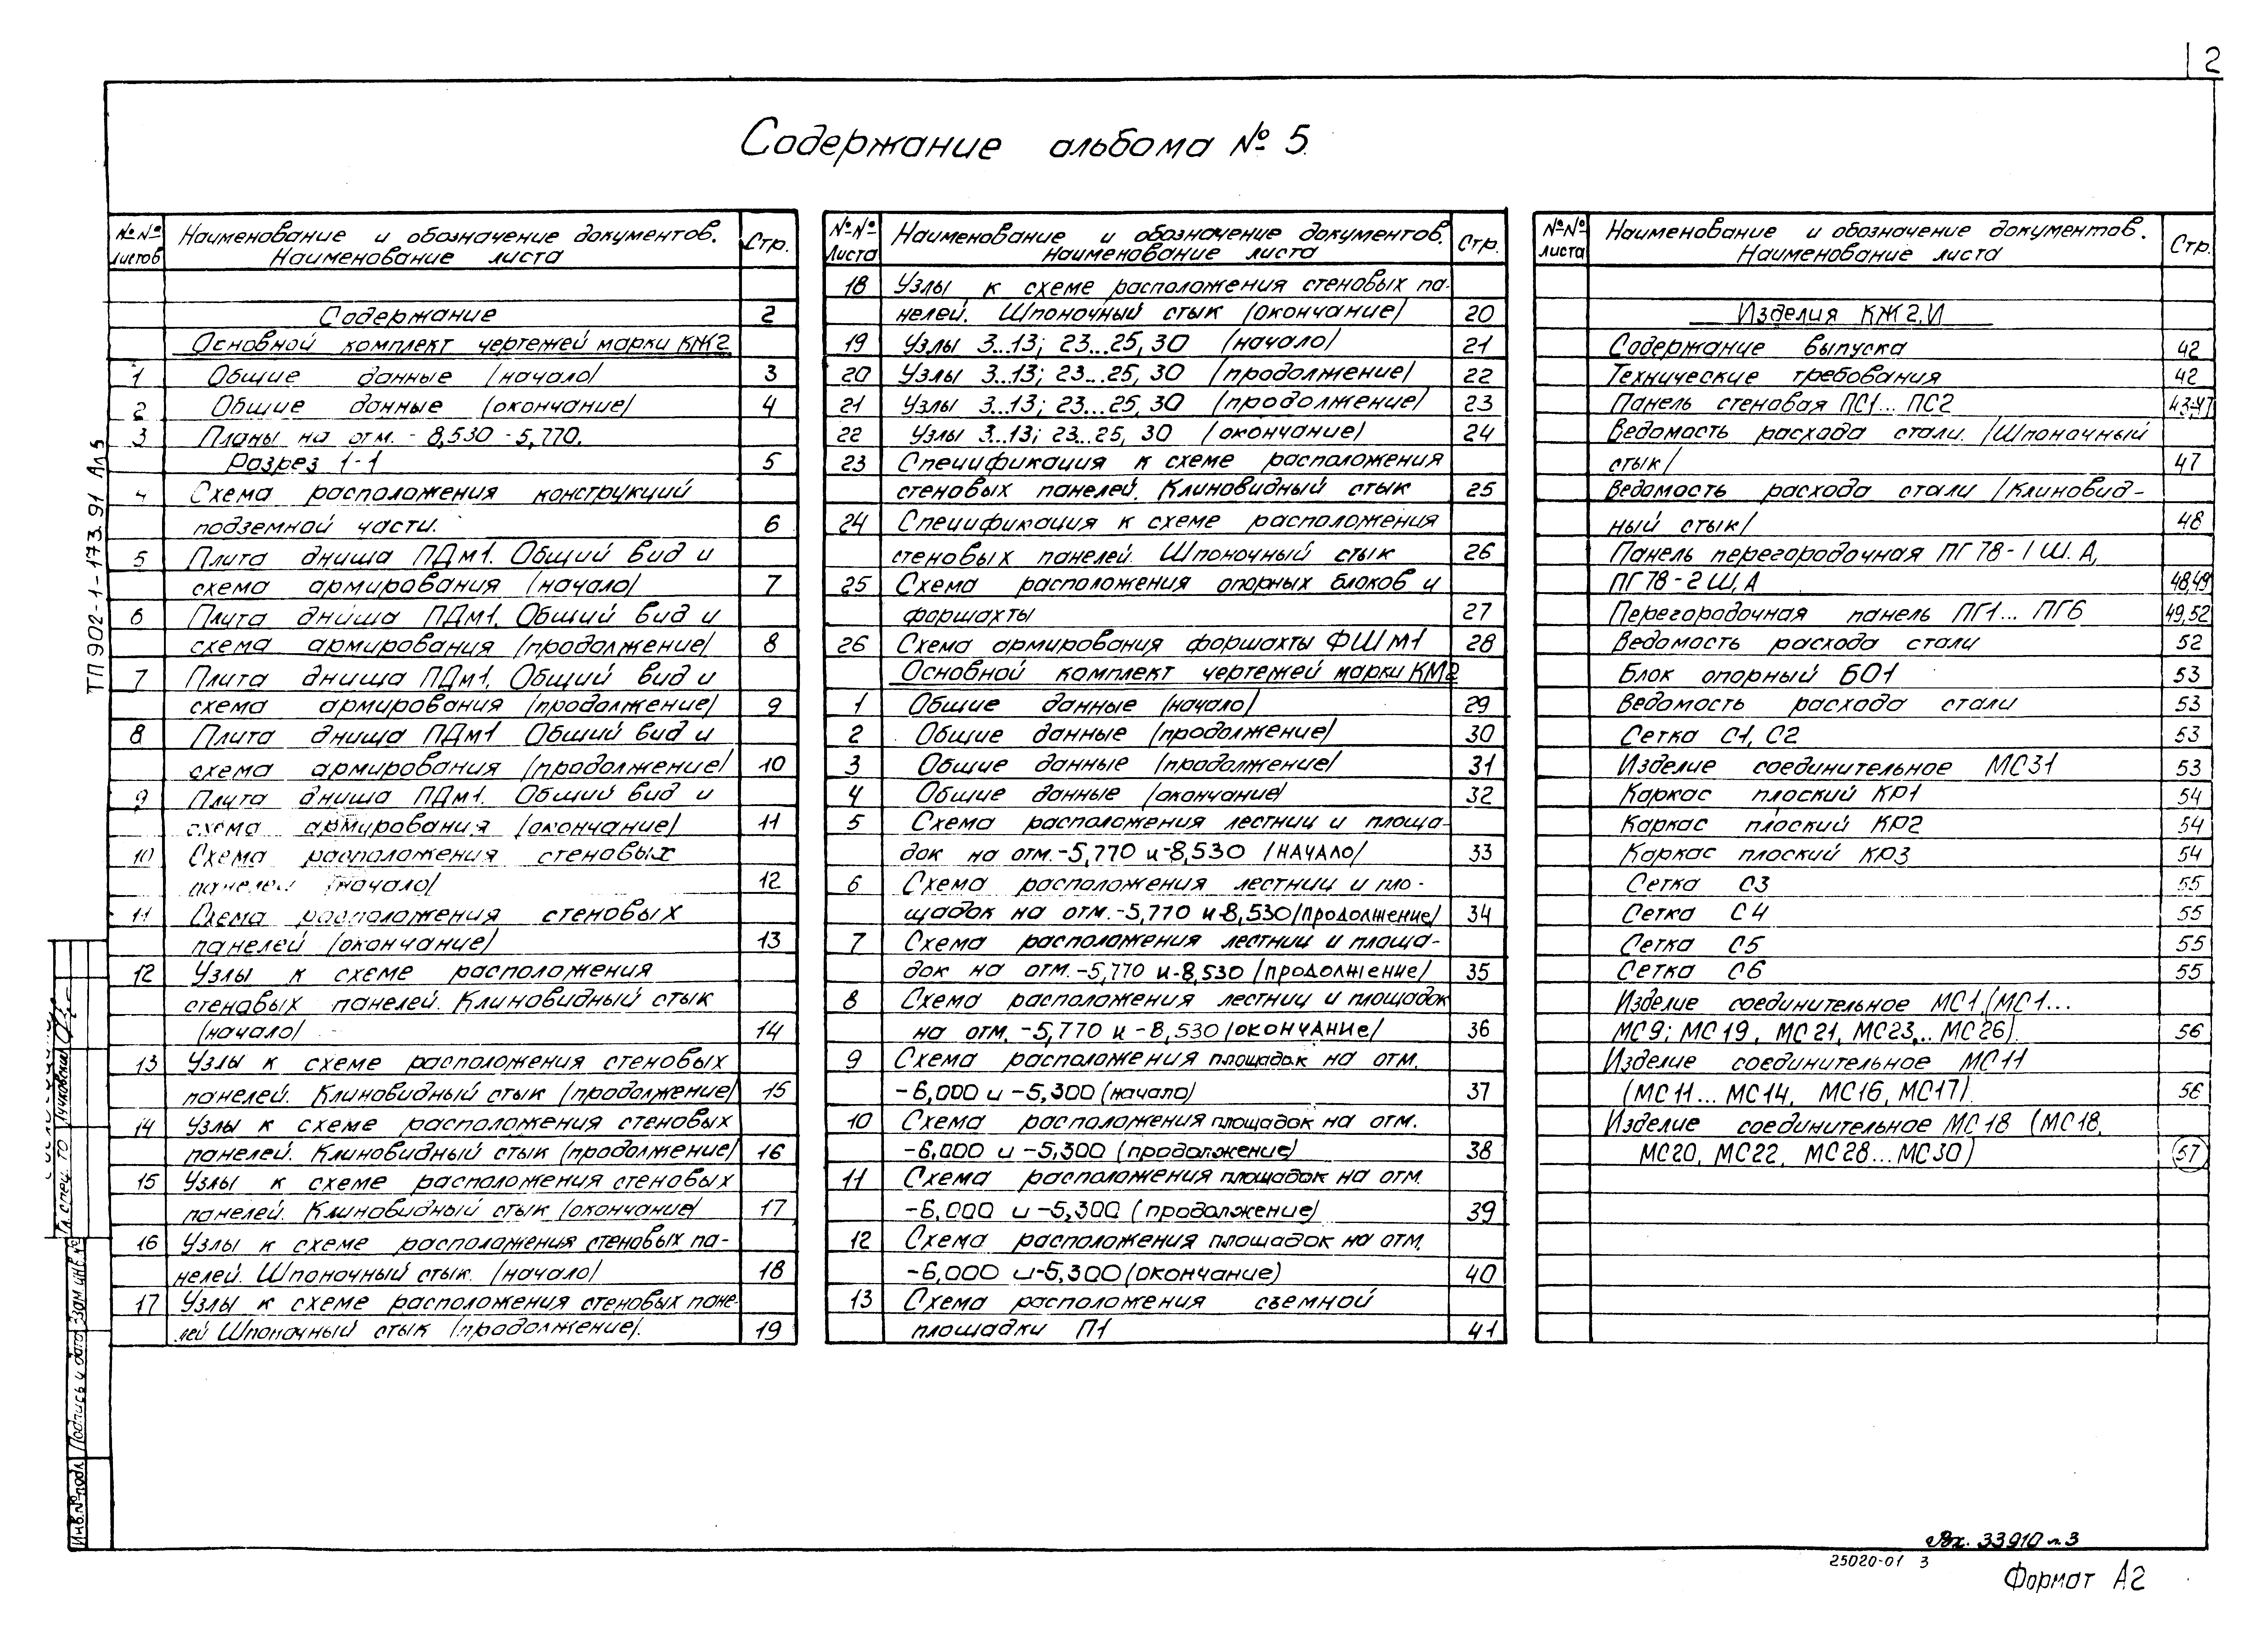 2
Содержание альбома № 5
№№ листов
Наименование и обозначение документов. Наименование листа
Стр.
Содержание 2
Основной комплект чертежей марки КЖ2
1 Общие данные /начало/ 3
2 Общие данные /окончание/ 4
3 Планы на отм. - 8,530 -5,770.
Разрез 1-1 5
4 Схема расположения конструкций
подземной части. 6
5 Плита днища ПДм1. Общий вид и
схема армирования /начало/ 7
6 Плита днища ПДм1. Общий вид и
схема армирования /продолжение/ 8
7 Плита днища ПДм1. Общий вид и
схема армирования /продолжение/ 9
8 Плита днища ПДм1 Общий вид и
схема армирования /продолжение/ 10
9 Плита днища ПДм1. Общий вид и
схема армирования /окончание/ 11
10 Схема расположения стеновых
панелей /начало/ 12
11 Схема расположения стеновых
панелей /окончание/ 13
12 Узлы к схеме расположения
стеновых панелей. Клиновидный стык
/начало/ 14
13 Узлы к схеме расположения стеновых
панелей. Клиновидный стык /продолжение/ 15
14 Узлы к схеме расположения стеновых
панелей. Клиновидный стык /продолжение/ 16
15 Узлы к схеме расположения стеновых
панелей. Клиновидный стык /окончание/ 17
16 Узлы к схеме расположения стеновых па-
нелей. Шпоночный стык. /начало/ 18
17 Узлы к схеме расположения стеновых пане-
лей Шпоночный стык /продолжение/. 19
№№ листа
Наименование и обозначение документов. Наименование листа
Стр.
18 Узлы к схеме расположения стеновых па-
нелей. Шпоночный стык /окончание/ 20
19 Узлы 3...13; 23...25, 30 /начало/ 21
20 Узлы 3...13; 23...25, 30 /продолжение/ 22
21 Узлы 3...13; 23...25, 30 /продолжение/ 23
22 Узлы 3...13; 23...25, 30 /окончание/ 24
23 Спецификация к схеме расположения
стеновых панелей. Клиновидный стык 25
24 Спецификация к схеме расположения
стеновых панелей. Шпоночный стык 26
25 Схема расположения опорных блоков и
форшахты 27
26 Схема армирования форшахты ФШм1 28
Основной комплект чертежей марки КМ2
1 Общие данные /начало/ 29
2 Общие данные /продолжение/ 30
3 Общие данные /продолжение/ 31
4 Общие данные /окончание/ 32
5 Схема расположения лестниц и площа-
док на отм.-5,770 и-8,530 /начало/ 33
6 Схема расположения лестниц и пло-
щадок на отм.-5,770 и-8,530/продолжение/ 34
7 Схема расположения лестниц и площа-
док на отм.-5,770 и-8,530 /продолжение/ 35
8 Схема расположения лестниц и площадок
на отм. -5,770 и -8,530 /окончание/ 36
9 Схема расположения площадок на отм.
-6,000 и -5,300 (начало) 37
10 Схема расположения площадок на отм.
-6,000 и -5,300 (продолжение) 38
11 Схема расположения площадок на отм.
-6,000 и -5,300 (продолжение) 39
12 Схема расположения площадок на отм.
-6,000 и-5,300 (окончание) 40
13 Схема расположения съемной
площадки П1 41
№№ листа
Наименование и обозначение документов. Наименование листа
Стр.
Изделия КЖ2.И
Содержание выпуска 42
Технические требования 42
Панель стеновая ПС1... ПС2 43-47
Ведомость расхода стали. /Шпоночный
стык/ 47
Ведомость расхода стали /Клиновид-
ный стык/ 48
Панель перегородочная ПГ 78-1 Ш.А,
ПГ78-2 Ш,А 48,49
Перегородочная панель ПГ1... ПГ6 49,52
Ведомость расхода стали 52
Блок опорный БО1 53
Ведомость расхода стали 53
Сетка С1, С2 53
Изделие соединительное МС31 53
Каркас плоский КР1 54
Каркас плоский КР2 54
Каркас плоский КР3 54
Сетка С3 55
Сетка С4 55
Сетка С5 55
Сетка С6 55
Изделие соединительное МС1.(МС1...
МС9; МС19, МС21, МС23,.. МС26). 56
Изделие соединительное МС11
(МС11... МС14, МС16, МС17). 56
Изделие соединительное МС18 (МС18,
МС20, МС22, МС28...МС30) 57
ТП 902-1-173.91 Ал 5
Гл. спец. ТО
Взам инв. №
Подпись и дата
Инв.№ подл
Вх. 33910 л.3
25020-01 3
Формат А2